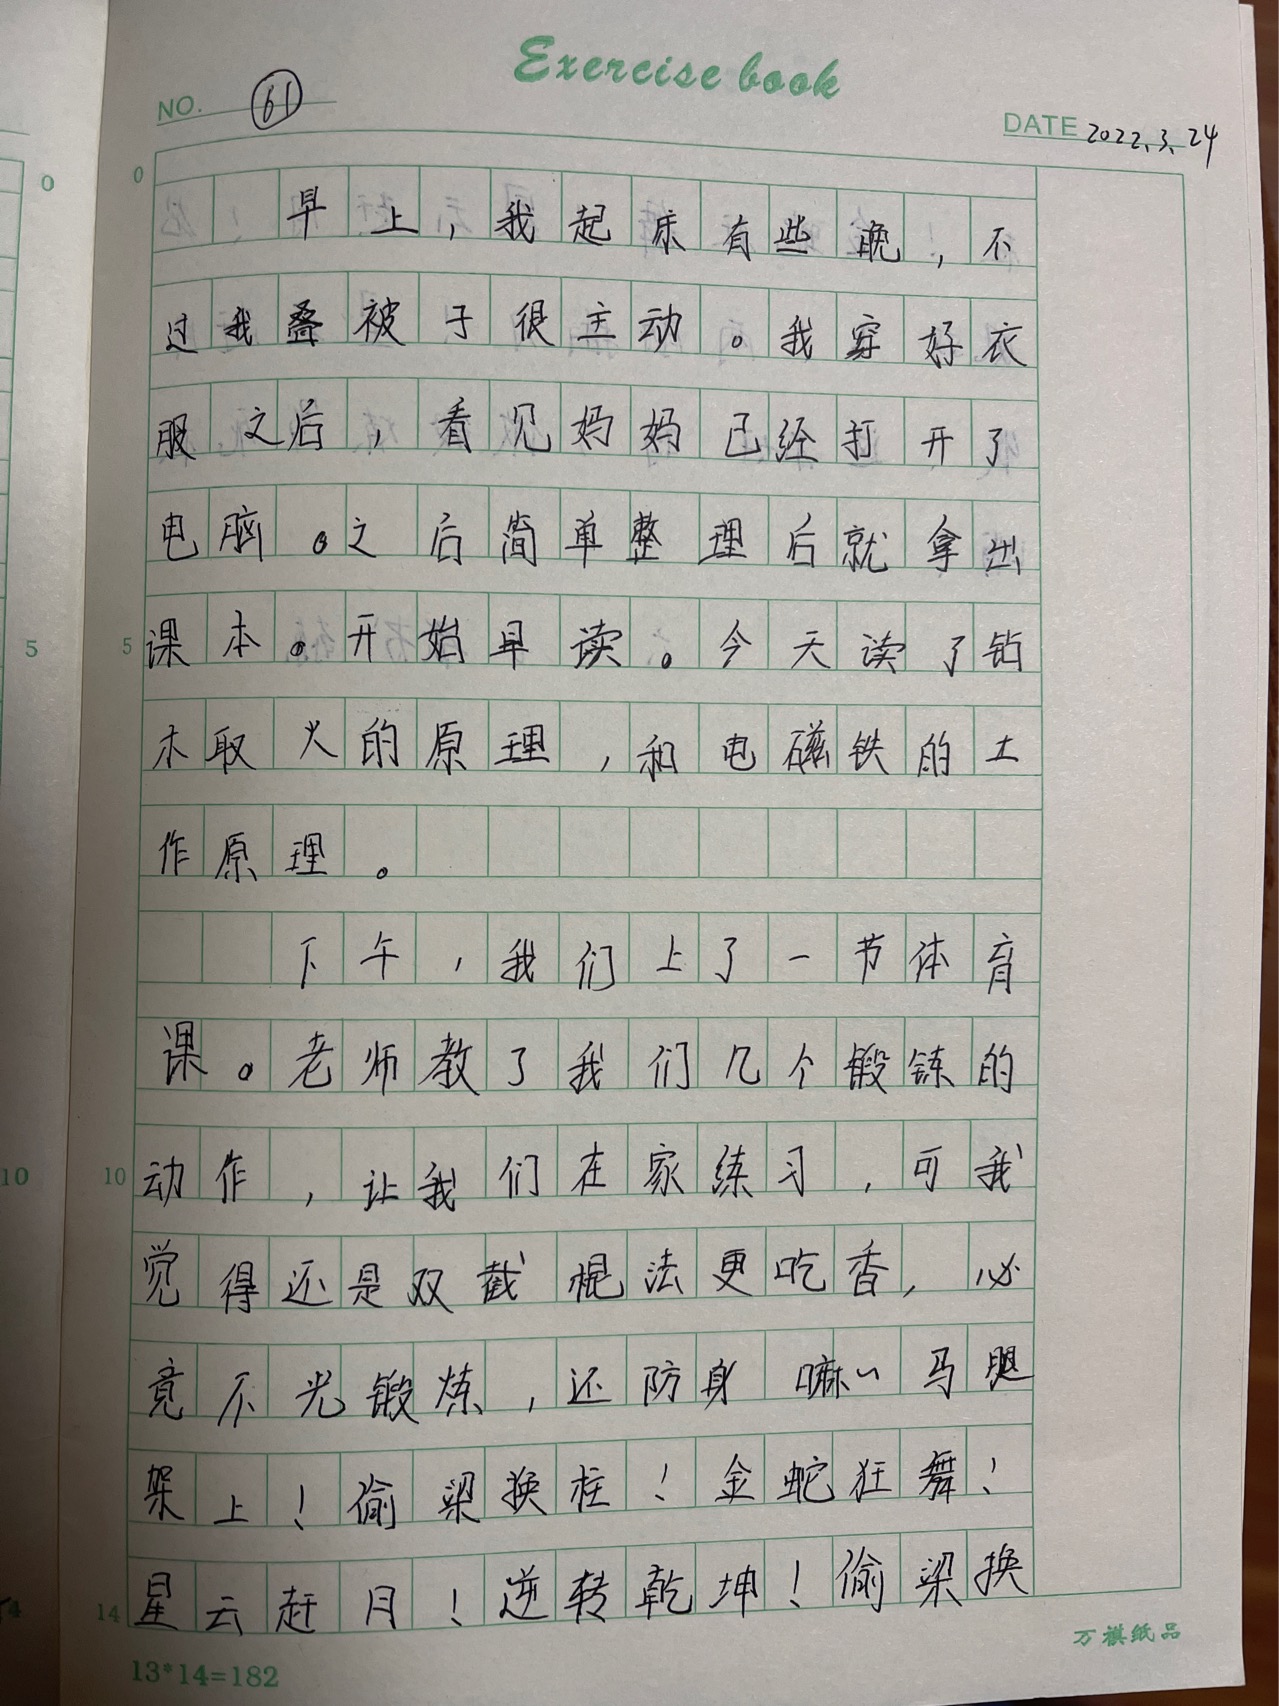 Exercise book
NO. 61
DATE 2022.3.24
0
0
早上，我起床有些晚，不
过我叠被子很主动。我穿好衣
服之后，看见妈妈已经打开了
电脑。之后简单整理后就拿出
5
5
课本。开始早读。今天读了钻
木取火的原理，和电磁铁的工
作原理。
下午，我们上了一节体育
课。老师教了我们几个锻铼的
10
10
动作，让我们在家练习，可我
觉得还是双截棍法更吃香，必
竟不光锻炼，还防身嘛~马腿
架上！偷梁换柱！金蛇狂舞！
14
14
星云赶月！逆转乾坤！偷梁换
万祺纸品
13*14=182